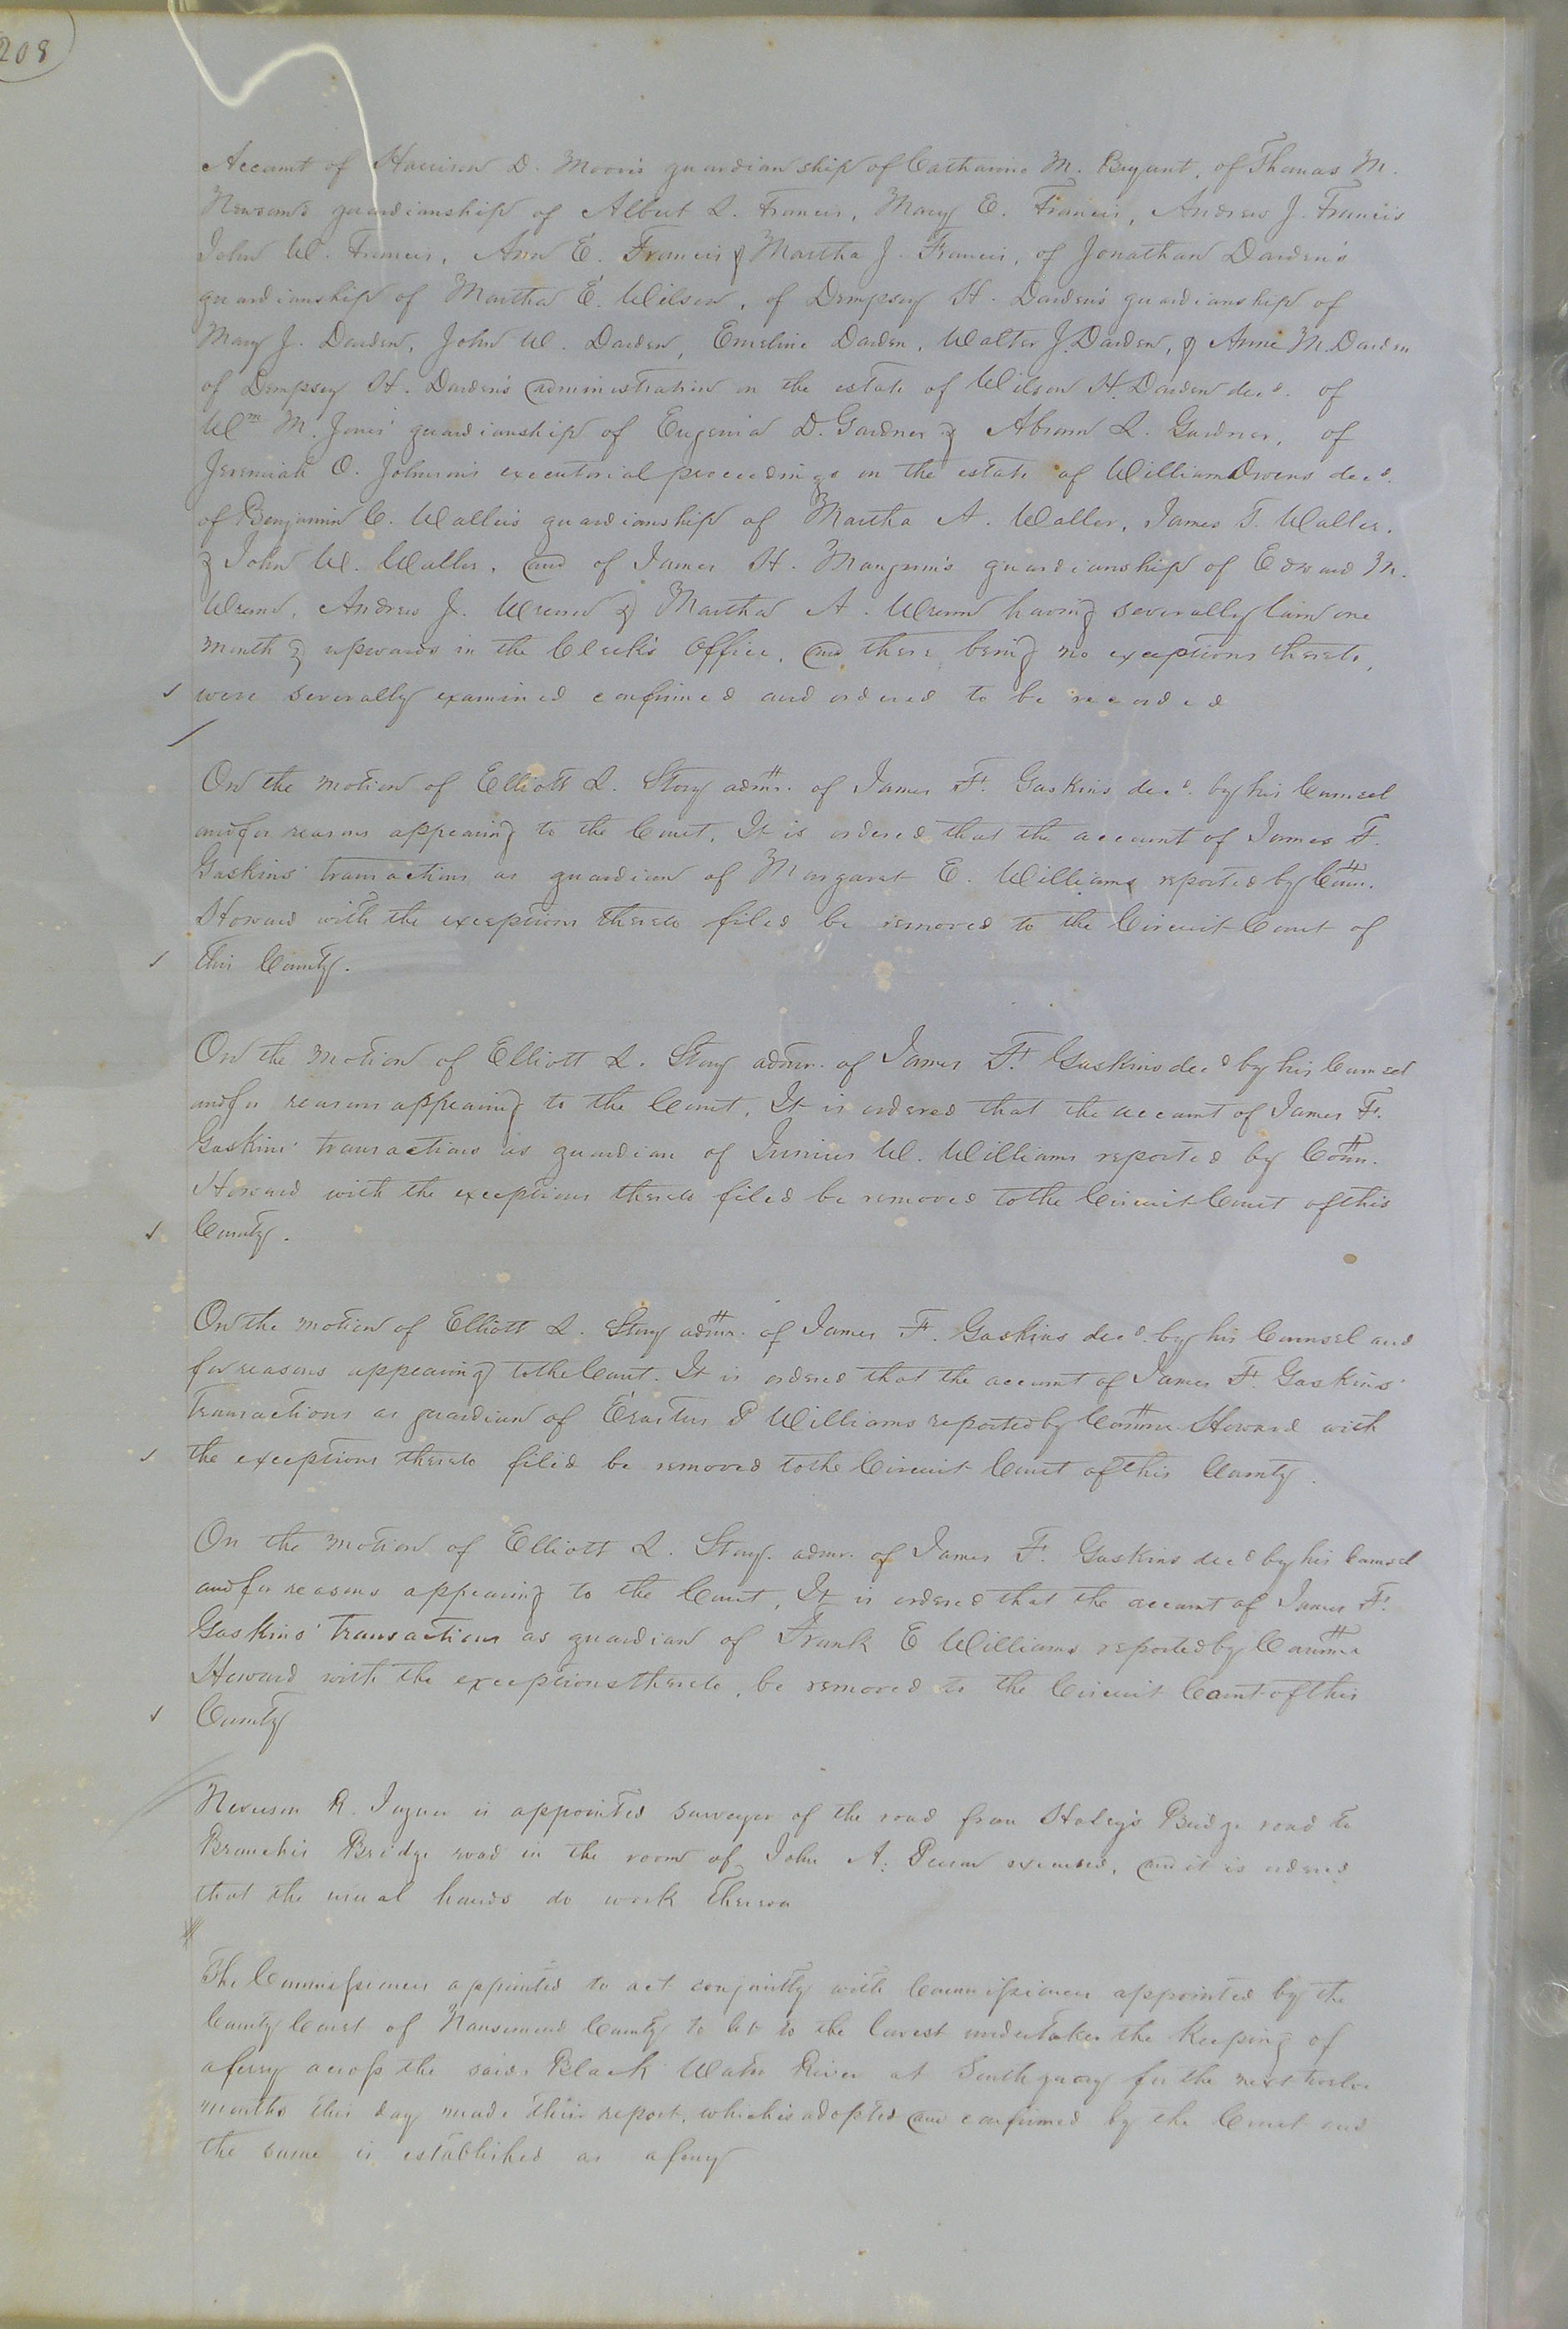 208
Account of Harrison D. Moore's guardianship of Catharine M. Bryant, of Thomas M.
Newsom's guardianship of Albert L. Francis, Mary E. Francis, Andrew J. Francis
John W. Francis, Ann E. Francis & Martha J. Francis, of Jonathan Darden's
guardianship of Martha E. Wilson, of Dempsey H. Darden's guardianship of
Mary J. Darden, John W. Darden, Emeline Darden, Walter J. Darden, & Anne M. Darden
of Dempsey H. Darden's administration on the estate of Wilson H. Darden decd. of
Wm M. Jones' guardianship of Eugenia D. Gardner & Abram L. Gardner, of
Jeremiah O. Johnson's executorial proceedings on the estate of William Owens decd.
of Benjamin C. Waller's guardianship of Martha A. Waller, James T. Waller,
& John W. Waller, and of James H. Mangum's guardianship of Edward M.
Wrenn, Andrew J. Wrenn & Martha A. Wrenn having severally lain one
month & upwards in the Clerk's Office, and there being no exceptions thereto,
were severally examined confirmed and ordered to be recorded
On the motion of Elliott L. Story admr. of James F. Gaskins decd. by his Counsel
and for reasons appearing to the Court, It is ordered that the account of James F.
Gaskins' transactions as guardian of Margaret E. Williams reported by Comr.
Howard with the exceptions thereto filed be removed to the Circuit Court of
this County.
On the motion of Elliott L. Story admr. of James F. Gaskins decd by his Counsel
and for reasons appearing to the Court, It is ordered that the account of James F.
Gaskins' transactions as guardian of Junius W. Williams reported by Comr.
Howard with the exceptions thereto filed be removed to the Circuit Court of this
County.
On the motion of Elliott L. Story admr. of James F. Gaskins decd. by his Counsel and
for reasons appearing to the Court. It is ordered that the account of James F. Gaskins'
transactions as guardian of Erastus P Williams reported by Commr Howard with
the exceptions thereto filed be removed to the Circuit Court of this County.
On the motion of Elliott L. Story. admr. of James F. Gaskins decd by his Counsel
and for reasons appearing to the Court, It is ordered that the account of James F.
Gaskins' transactions as guardian of Frank E Williams reported by Commr
Howard with the exceptions thereto, be removed to the Circuit Court of this
County
R. is appointed surveyor of the road from Haley's Bridge road to
Branch's Bridge road in the room of John A. excused, and it is ordered
that the usual hands do work thereon
The Commissioners appointed to act conjointly with Commissioners appointed by the
County Court of Nansemond County to let to the lowest undertaker the Keeping of
a ferry across the said Black Water River at South quay for the next twelve
months this day made their report, which is adopted and confirmed by the Court and
the same is established as a ferry